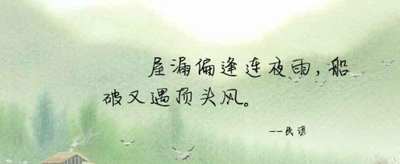 屋漏偏逢连夜雨，船
破又遇顶头风。
--民谚